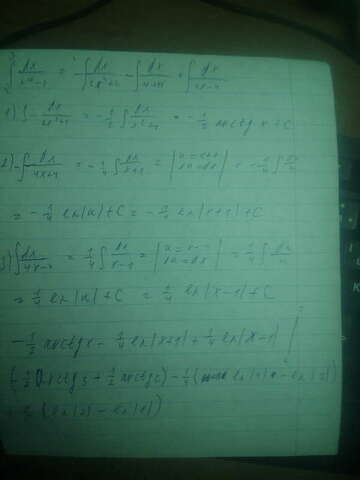 ∫ dx/(x⁴-1) = -∫ dx/(2x²+2) - ∫ dx/(4x+4) + ∫ dx/(4x-4)
1) ∫ - dx/(2x²+2) = -1/2 ∫ dx/(x²+1) = -1/2 arctg x + C
2) -∫ dx/(4x+4) = -1/4 ∫ dx/(x+1) = | u = x+1 du = dx | = -1/4 ∫ du/u
= -1/4 ln|u| + C = -1/4 ln|x+1| + C
3) ∫ dx/(4x-4) = 1/4 ∫ dx/(x-1) = | u = x-1 du = dx | = 1/4 ∫ du/u
= 1/4 ln|u| + C = 1/4 ln|x-1| + C
-1/2 arctg x - 1/4 ln|x+1| + 1/4 ln|x-1| |
(-1/2 arctg 3 + 1/2 arctg 2) -
(ln|2| - ln|1|)